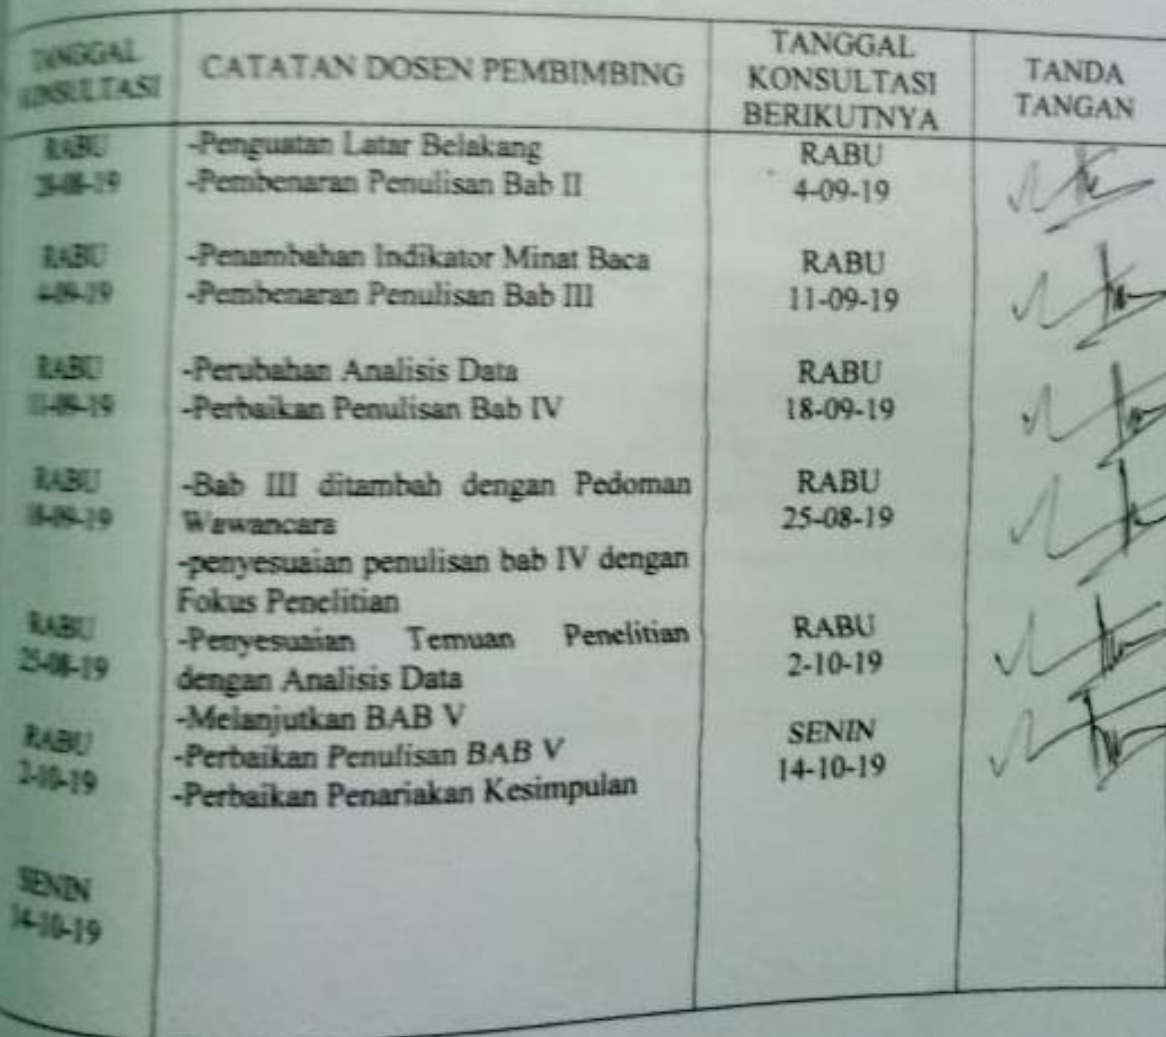 TANGGAL
KONSULTASI
CATATAN DOSEN PEMBIMBING
TANGGAL
KONSULTASI
BERIKUTNYA
TANDA
TANGAN
RABU
28-08-19
-Penguatan Latar Belakang
-Pembenaran Penulisan Bab II
RABU
4-09-19
RABU
4-09-19
-Penambahan Indikator Minat Baca
-Pembenaran Penulisan Bab III
RABU
11-09-19
RABU
11-09-19
-Perubahan Analisis Data
-Perbaikan Penulisan Bab IV
RABU
18-09-19
RABU
18-09-19
-Bab III ditambah dengan Pedoman
Wawancara
-penyesuaian penulisan bab IV dengan
Fokus Penelitian
RABU
25-08-19
RABU
25-08-19
-Penyesuaian Temuan Penelitian
dengan Analisis Data
-Melanjutkan BAB V
RABU
2-10-19
RABU
2-10-19
-Perbaikan Penulisan BAB V
-Perbaikan Penariakan Kesimpulan
SENIN
14-10-19
SENIN
14-10-19